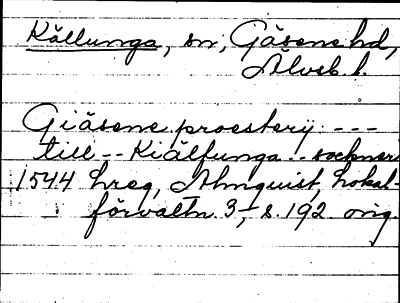 Källunga, sn, Gäsene hd,
Älvsb. l.
Giäsene proesterij: ---
till -- Kiälfunga -- sochner
1544 hreg, Almquist, Lokal-
förvaltn. 3, s. 192 orig.